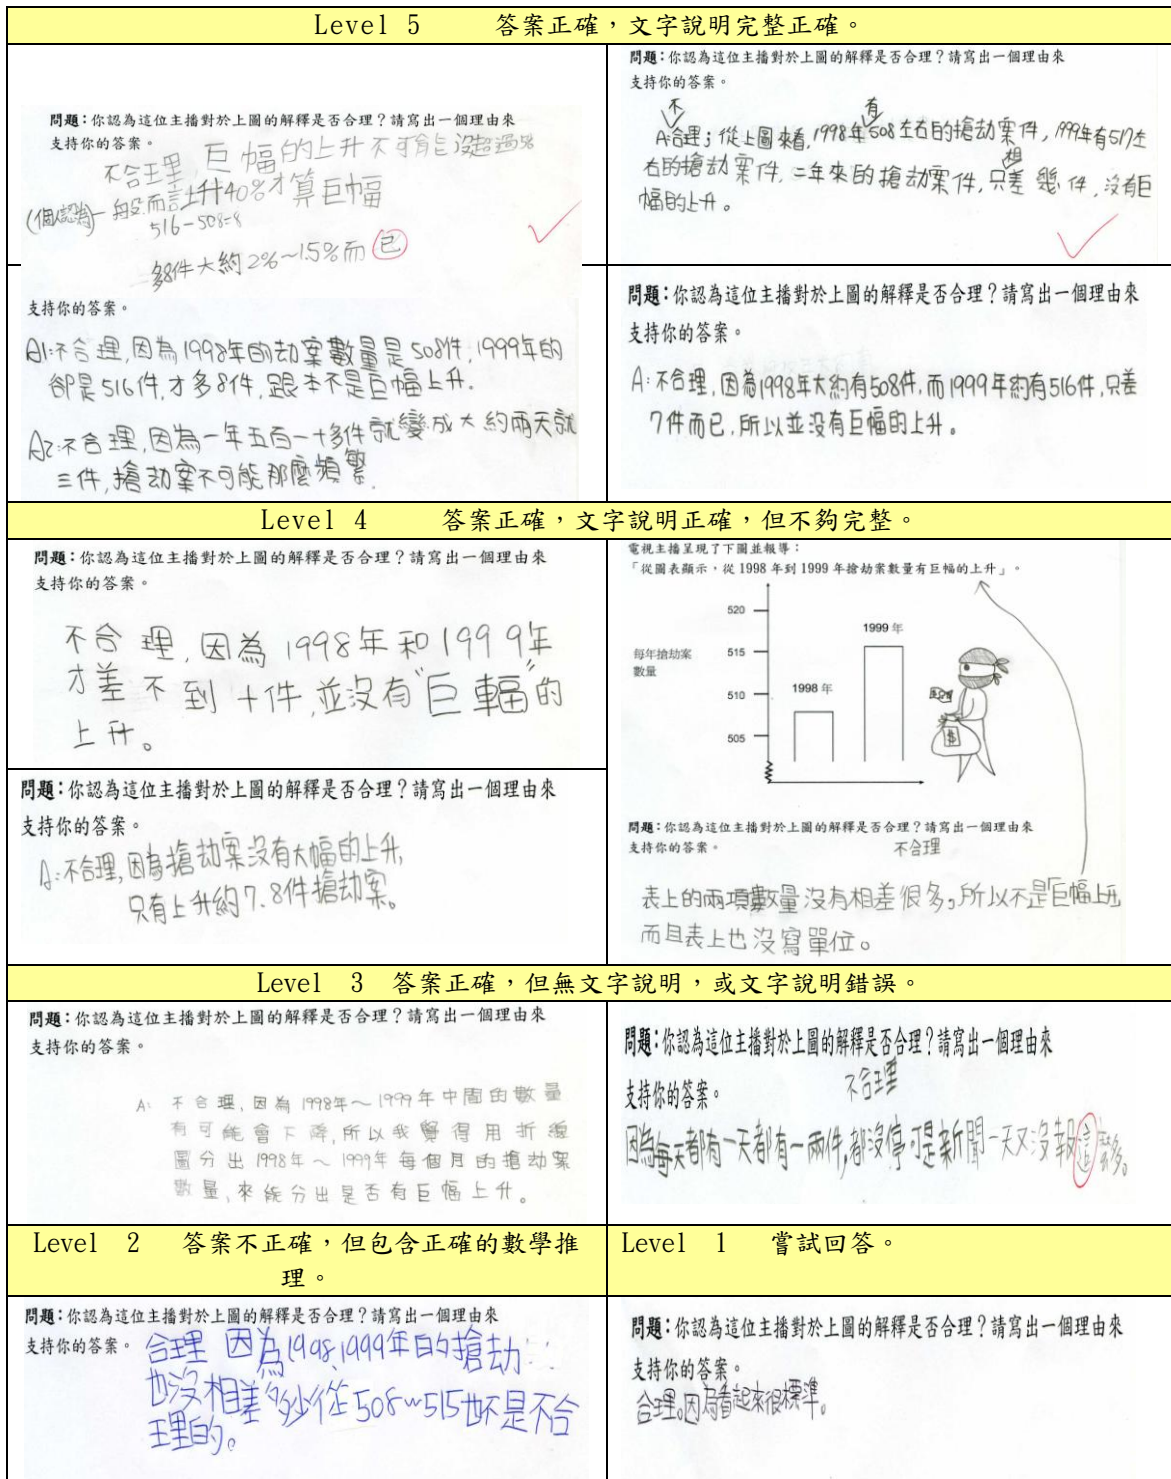 Level 5 答案正確，文字說明完整正確。
問題：你認為這位主播對於上圖的解釋是否合理？請寫出一個理由來
支持你的答案。
不合理 巨幅的上升不可能沒超過5%
(個人認為)一般而言上升40%才算巨幅
516-508=8
多8件大約2%~1.5%而已
問題：你認為這位主播對於上圖的解釋是否合理？請寫出一個理由來
支持你的答案。
不 有
A:合理；從上圖來看,1998年508左右的搶劫案件,1999年有517左
右的搶劫案件,二年來的搶劫案件,只差幾件,沒有巨
幅的上升。
支持你的答案。
A1:不合理,因為1998年的劫案數量是508件,1999年的
卻是516件,才多8件,跟本不是巨幅上升.
A2:不合理,因為一年五百一十多件就變成大約兩天就
三件,搶劫案不可能那麼頻繁.
問題：你認為這位主播對於上圖的解釋是否合理？請寫出一個理由來
支持你的答案。
A:不合理,因為1998年大約有508件,而1999年約有516件,只差
7件而已,所以並沒有巨幅的上升。
Level 4 答案正確，文字說明正確，但不夠完整。
問題：你認為這位主播對於上圖的解釋是否合理？請寫出一個理由來
支持你的答案。
不合理,因為1998年和1999年
才差不到十件,並沒有"巨幅"的
上升。
問題：你認為這位主播對於上圖的解釋是否合理？請寫出一個理由來
支持你的答案。
A:不合理,因為搶劫案沒有大幅的上升,
只有上升約7.8件搶劫案。
電視主播呈現了下圖並報導：
「從圖表顯示，從1998年到1999年搶劫案數量有巨幅的上升」。
520
1999 年
每年搶劫案
數量
515
1998 年
510
505
$
問題：你認為這位主播對於上圖的解釋是否合理？請寫出一個理由來
支持你的答案。
不合理
表上的兩項數量沒有相差很多,所以不是「巨幅上升」
而且表上也沒寫單位。
Level 3 答案正確，但無文字說明，或文字說明錯誤。
問題：你認為這位主播對於上圖的解釋是否合理？請寫出一個理由來
支持你的答案。
A: 不合理,因為1998年～1999年中間的數量
有可能會下降,所以我覺得用折線
圖分出1998年～1999年每個月的搶劫案
數量,來能分出是否有巨幅上升。
問題：你認為這位主播對於上圖的解釋是否合理？請寫出一個理由來
支持你的答案。
不合理
因為每天都有一天都有一兩件,都沒停可是新聞一天又沒報這麼多。
Level 2 答案不正確，但包含正確的數學推
理。
Level 1 嘗試回答。
問題：你認為這位主播對於上圖的解釋是否合理？請寫出一個理由來
支持你的答案。
合理 因為1998,1999年的搶劫
也沒相差多少從508~515也不是不合
理的。
問題：你認為這位主播對於上圖的解釋是否合理？請寫出一個理由來
支持你的答案。
合理。因為看起來很標準。